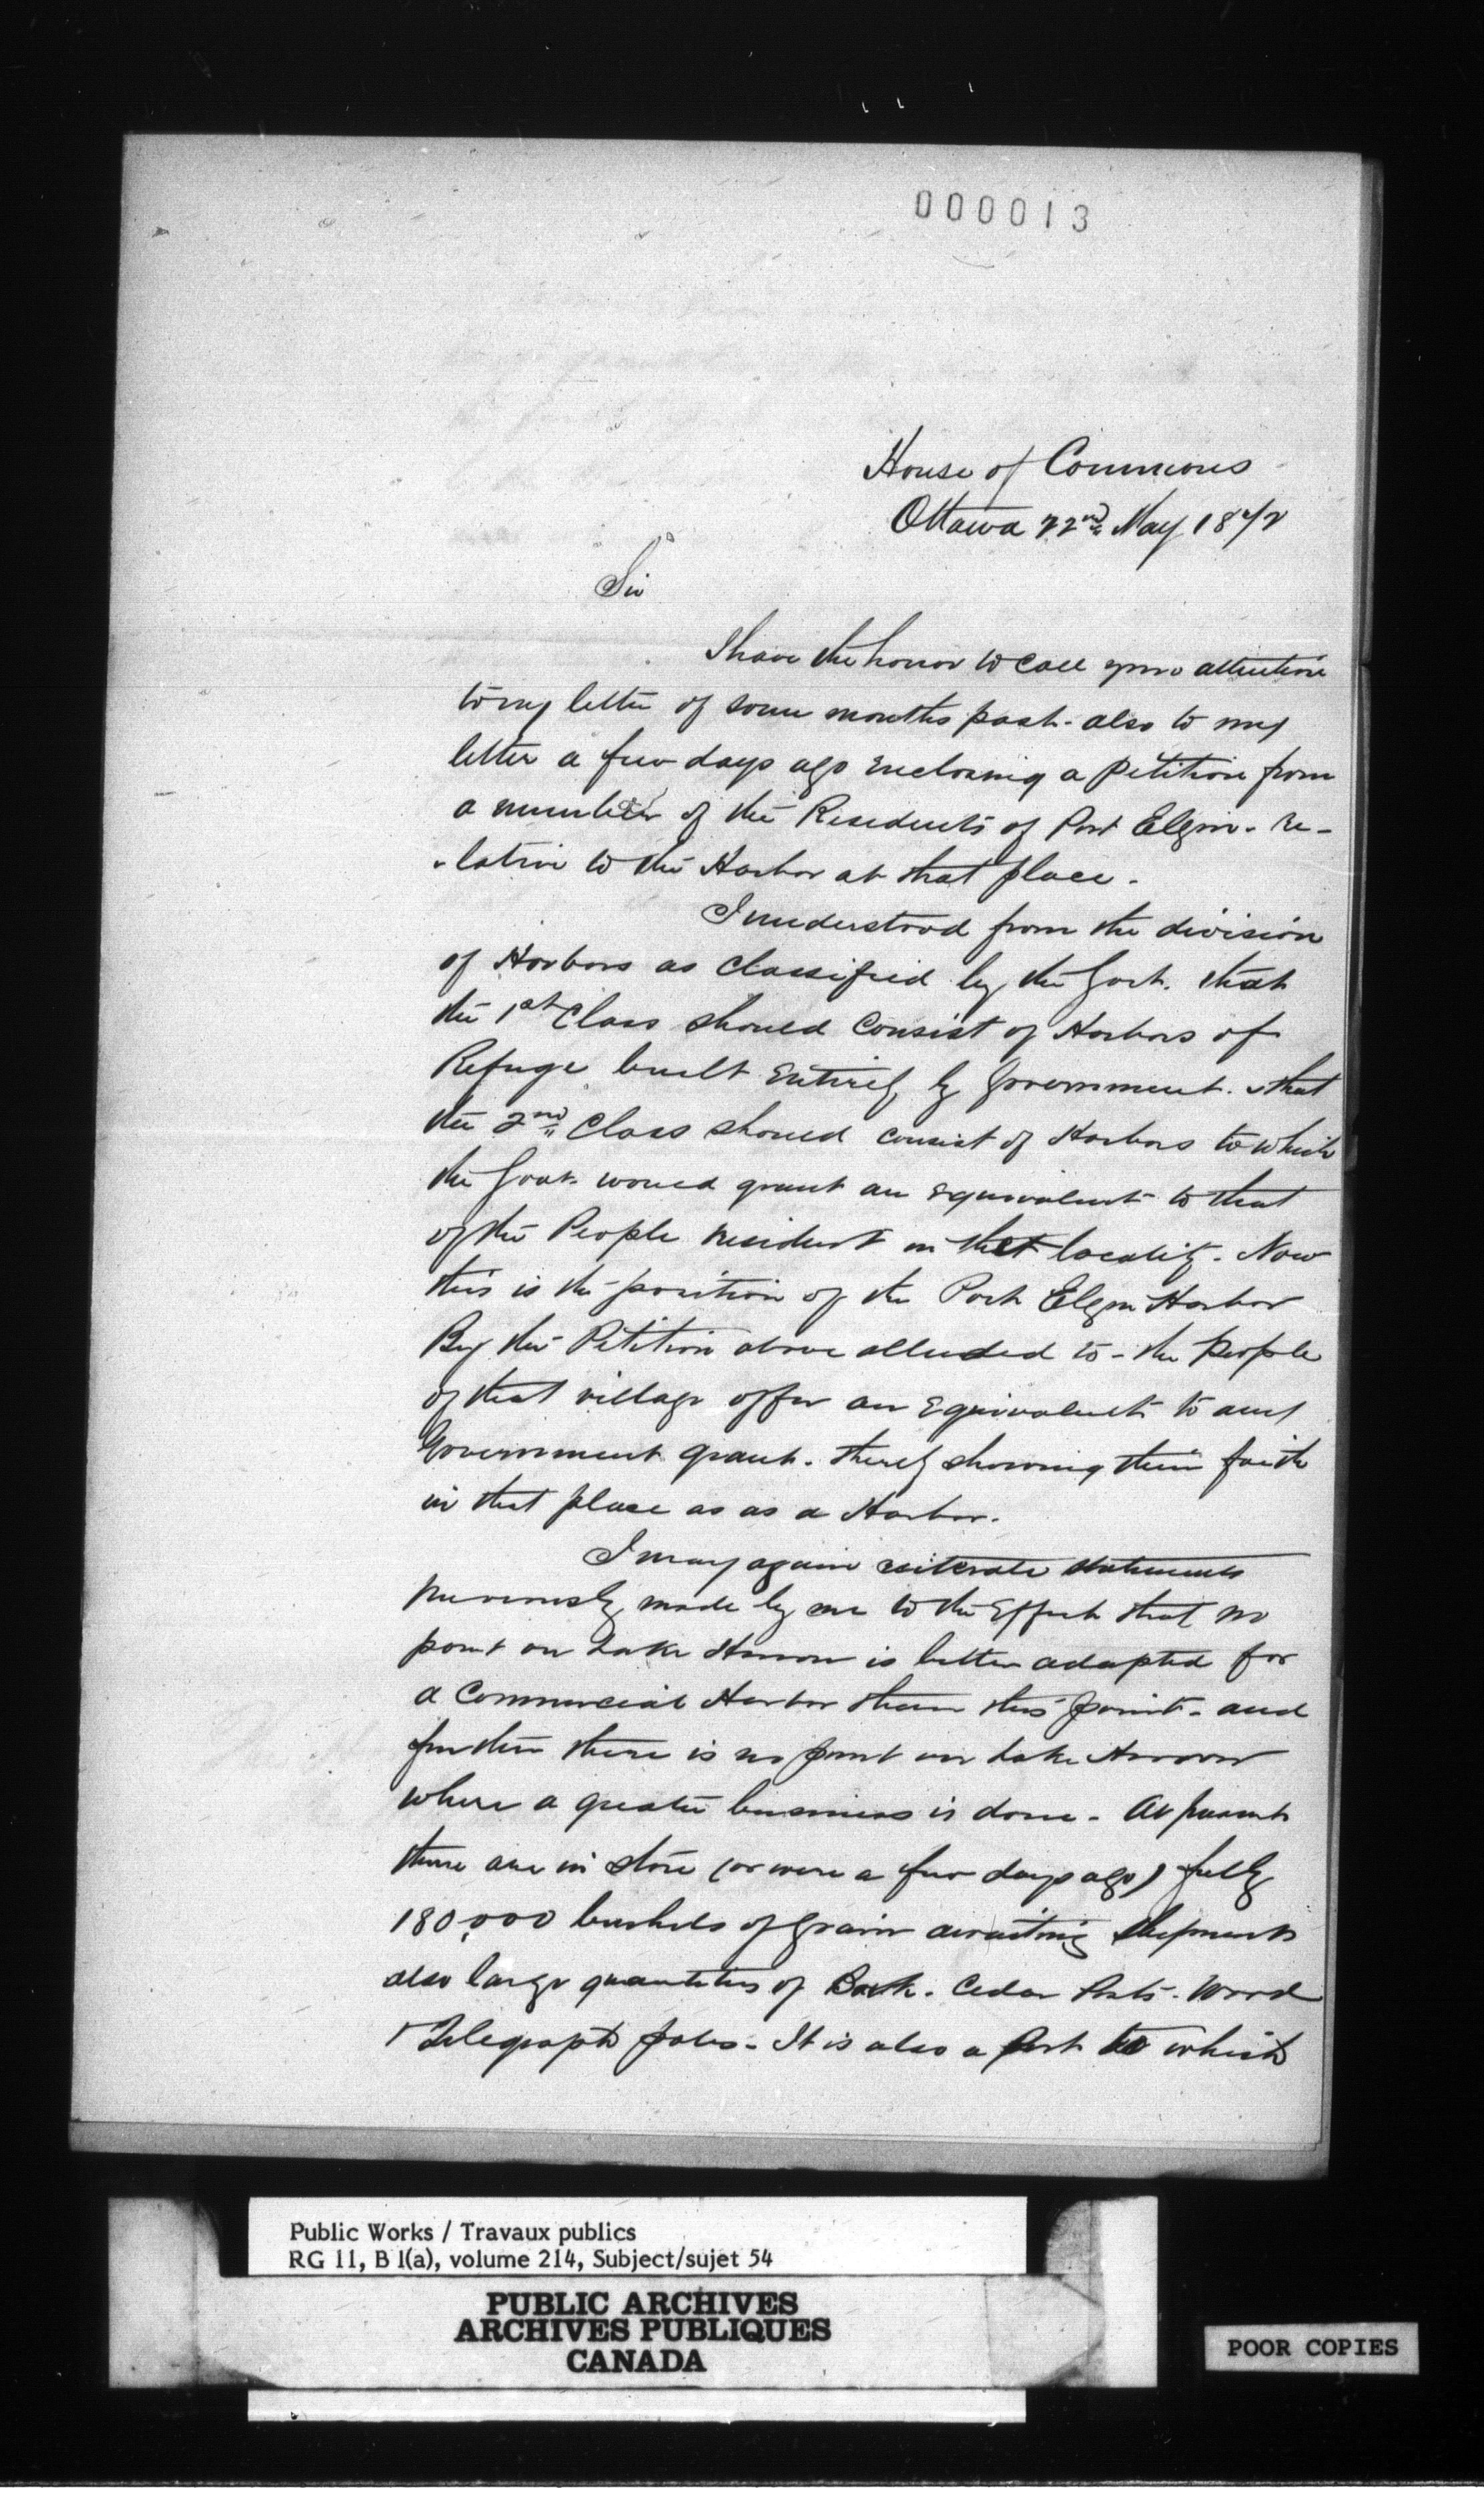 000013
House of Commons
Ottawa 22nd May 1872
Sir
I have the honor to call your attention
to my letter of some months past - also to my
letter a few days ago enclosing a Petition from
a number of the Residents of Port Elgin - re-
-lative to the Harbor at that place -
I understood from the division
of Harbors as classified by the Govt. that
the 1st Class should consist of Harbors of
Refuge built entirely by Government - & that
the 2nd Class should consist of Harbors to which
the Govt. would grant an equivalent to that
of the People resident in that locality - Now
this is the position of the Port Elgin Harbor
By the Petition above alluded to - the People
of that village offer an Equivalent to any
Government grant - thereby showing their faith
in that place as as a Harbor.
I may again reiterate statements
previously made by me to the Effect that no
point on Lake Huron is better adapted for
a Commercial Harbor than this point - and
further there is no point on Lake Huron
where a greater business is done - At present
there are in store (or were a few days ago) fully
180,000 bushels of Grain awaiting shipment
also large quantities of Bark - Cedar Posts - Wood
& Telegraph poles - It is also a Port to which
Public Works / Travaux publics
RG 11, B 1(a), volume 214, Subject/sujet 54
PUBLIC ARCHIVES
ARCHIVES PUBLIQUES
CANADA
POOR COPIES